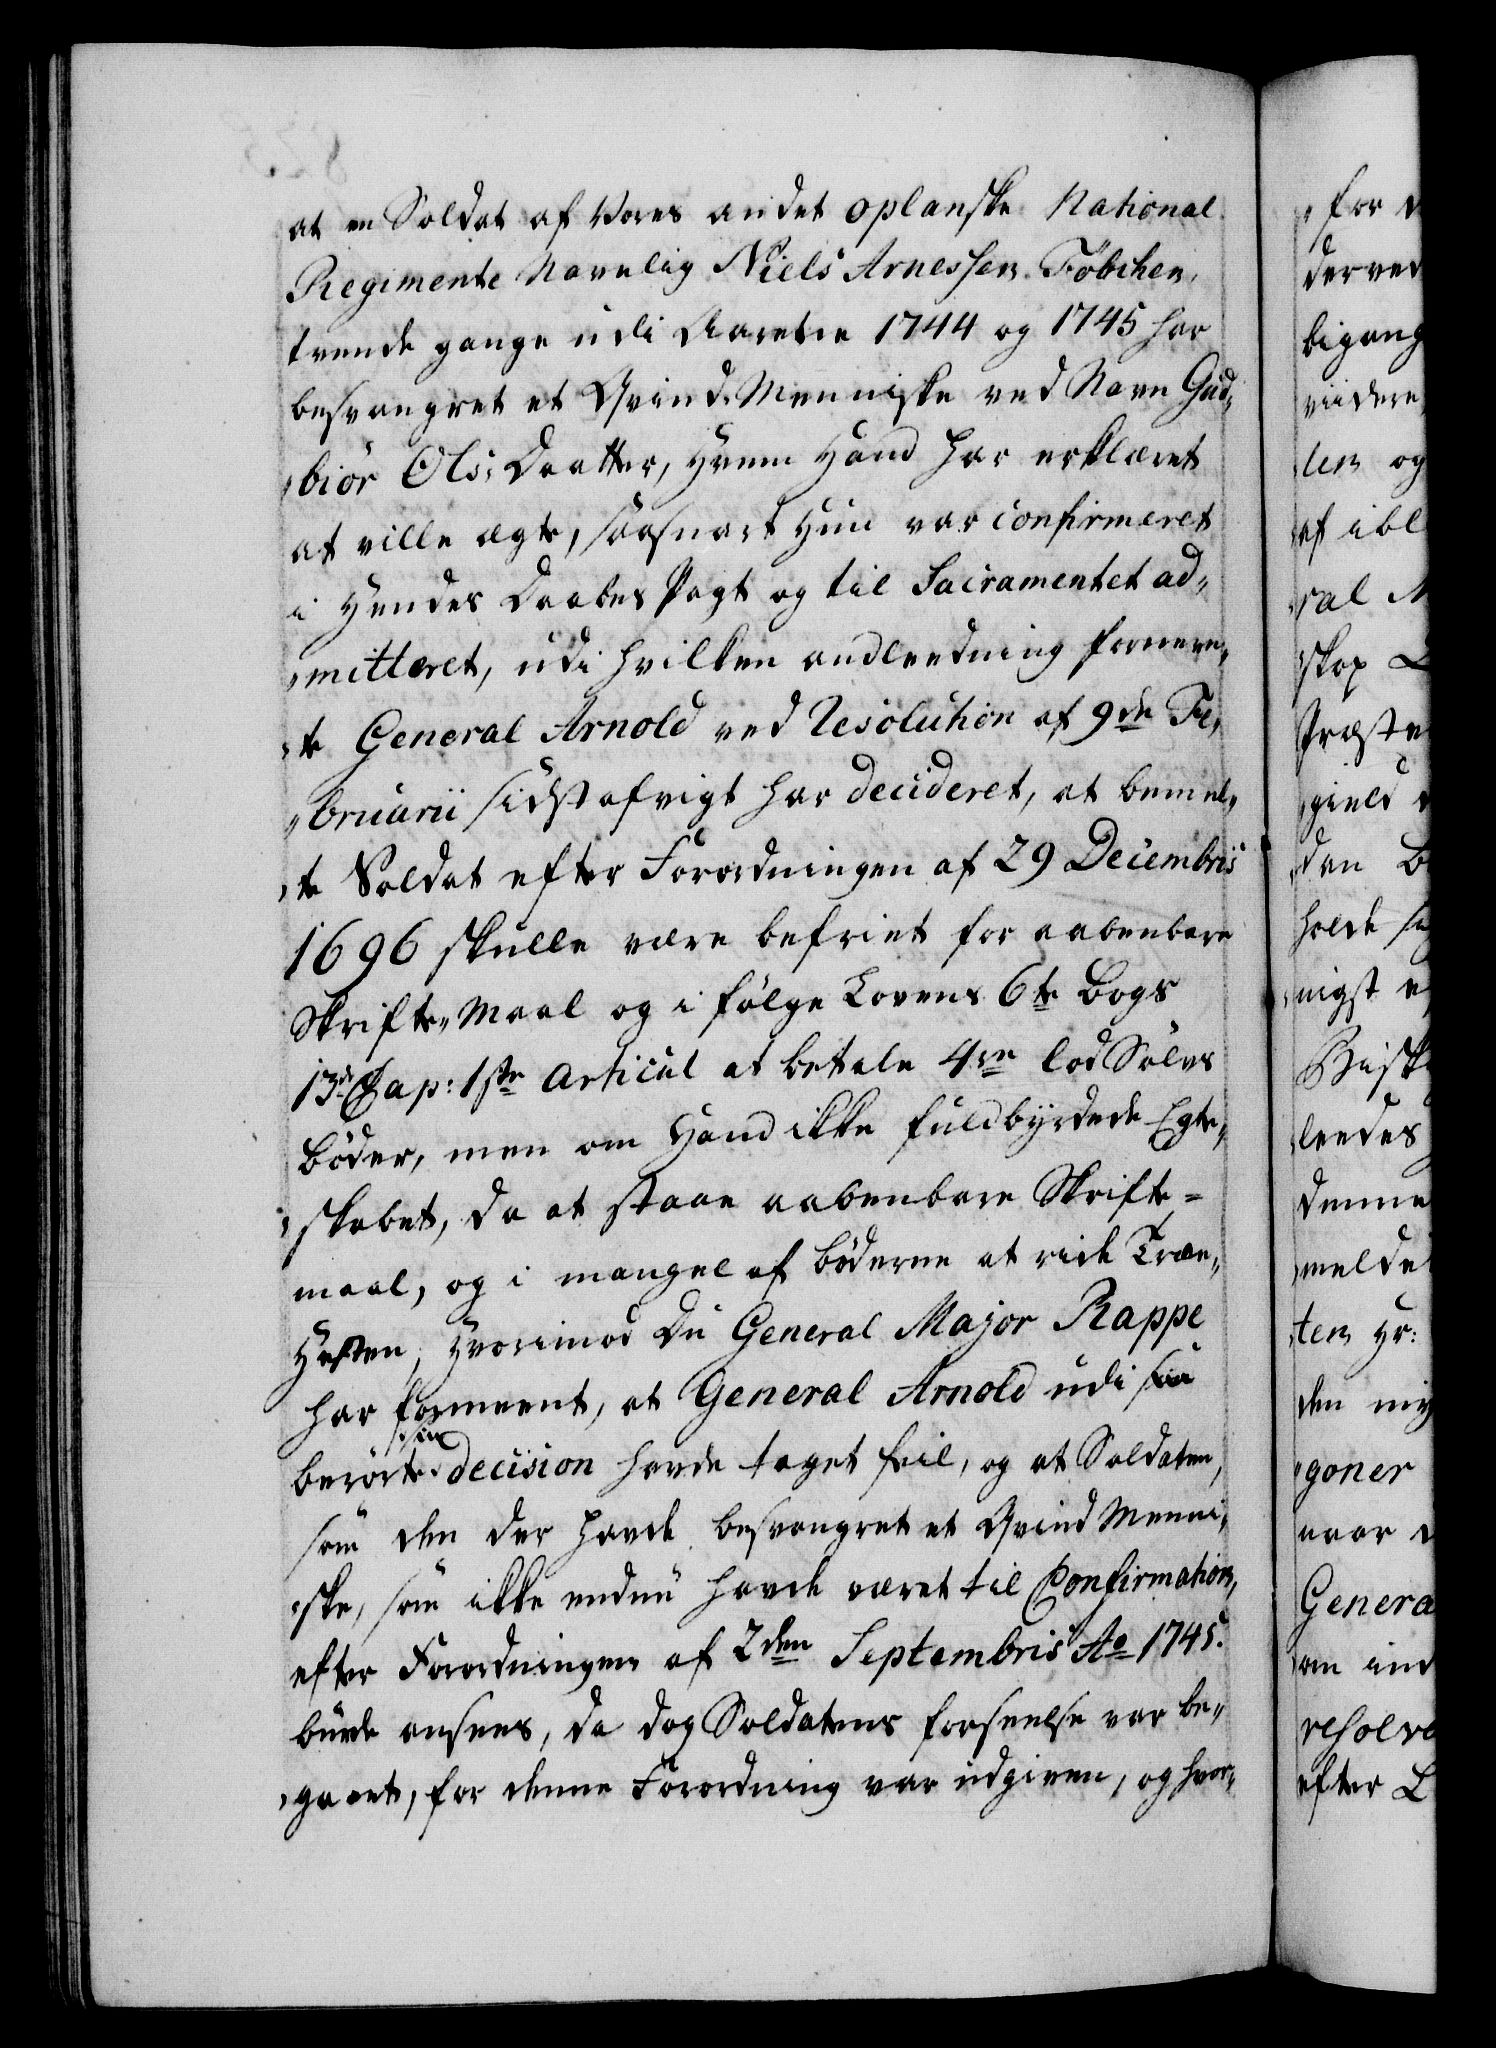 at en Soldat af Vores andet oplanske National
Regimente Navnlig Niels Arnessen Föbchen,
tvende gange udi Aarene 1744 og 1745 har
besvangret et Qvind Menniske ved Navn Gud„
„biör Ols: Daatter, Hvem Hand har erklæret
at ville ægte, saasnart Hun var confirmeret
i Hendes Daabes Pagt og til Sacramentet ad„
„mitteret, udi hvilken andleedning forneven„
„te General Arnold ved Resolution af 9de Fe„
„bruarii sidstafvigt har decideret, at bemel„
„te Soldat efter Forordningen af 29 Decembris
1696 skulle være befriet for aabenbare
Skrifte„Maal og i følge Lovens 6te Bogs
13de Cap: 1ste Articul at betale 4re lod Sølvs
Bøder, men om Hand ikke fuldbyrdede Egte„
„skabet, da at staae aabenbare Skrifte=
maal, og i mangel af bøderne at ride Træe„
Hesten, Hvorimod Du General Major Rappe
har formeent, at General Arnold udi saa
berørte sin decision havde taget feil, og at Soldaten,
som den der havde besvangret et Qvind Menni„
„ske, som ikke endnu havde været til Confirmation,
efter Forordningen af 2den Septembris Ao 1745.
burde ansees, da dog Soldatens forseelse var be„
„gaaet, før denne Forordning var udgiven, og hvor„
„for
derved
bigang
viidere
len og
af ibl
ral M
„skop
Præste
„gield
dan B
holde
nigst
Bisk
leedes
denne
melde
ten Hr:
den
„goner
naar
Genera
an ind
resolve
efter L